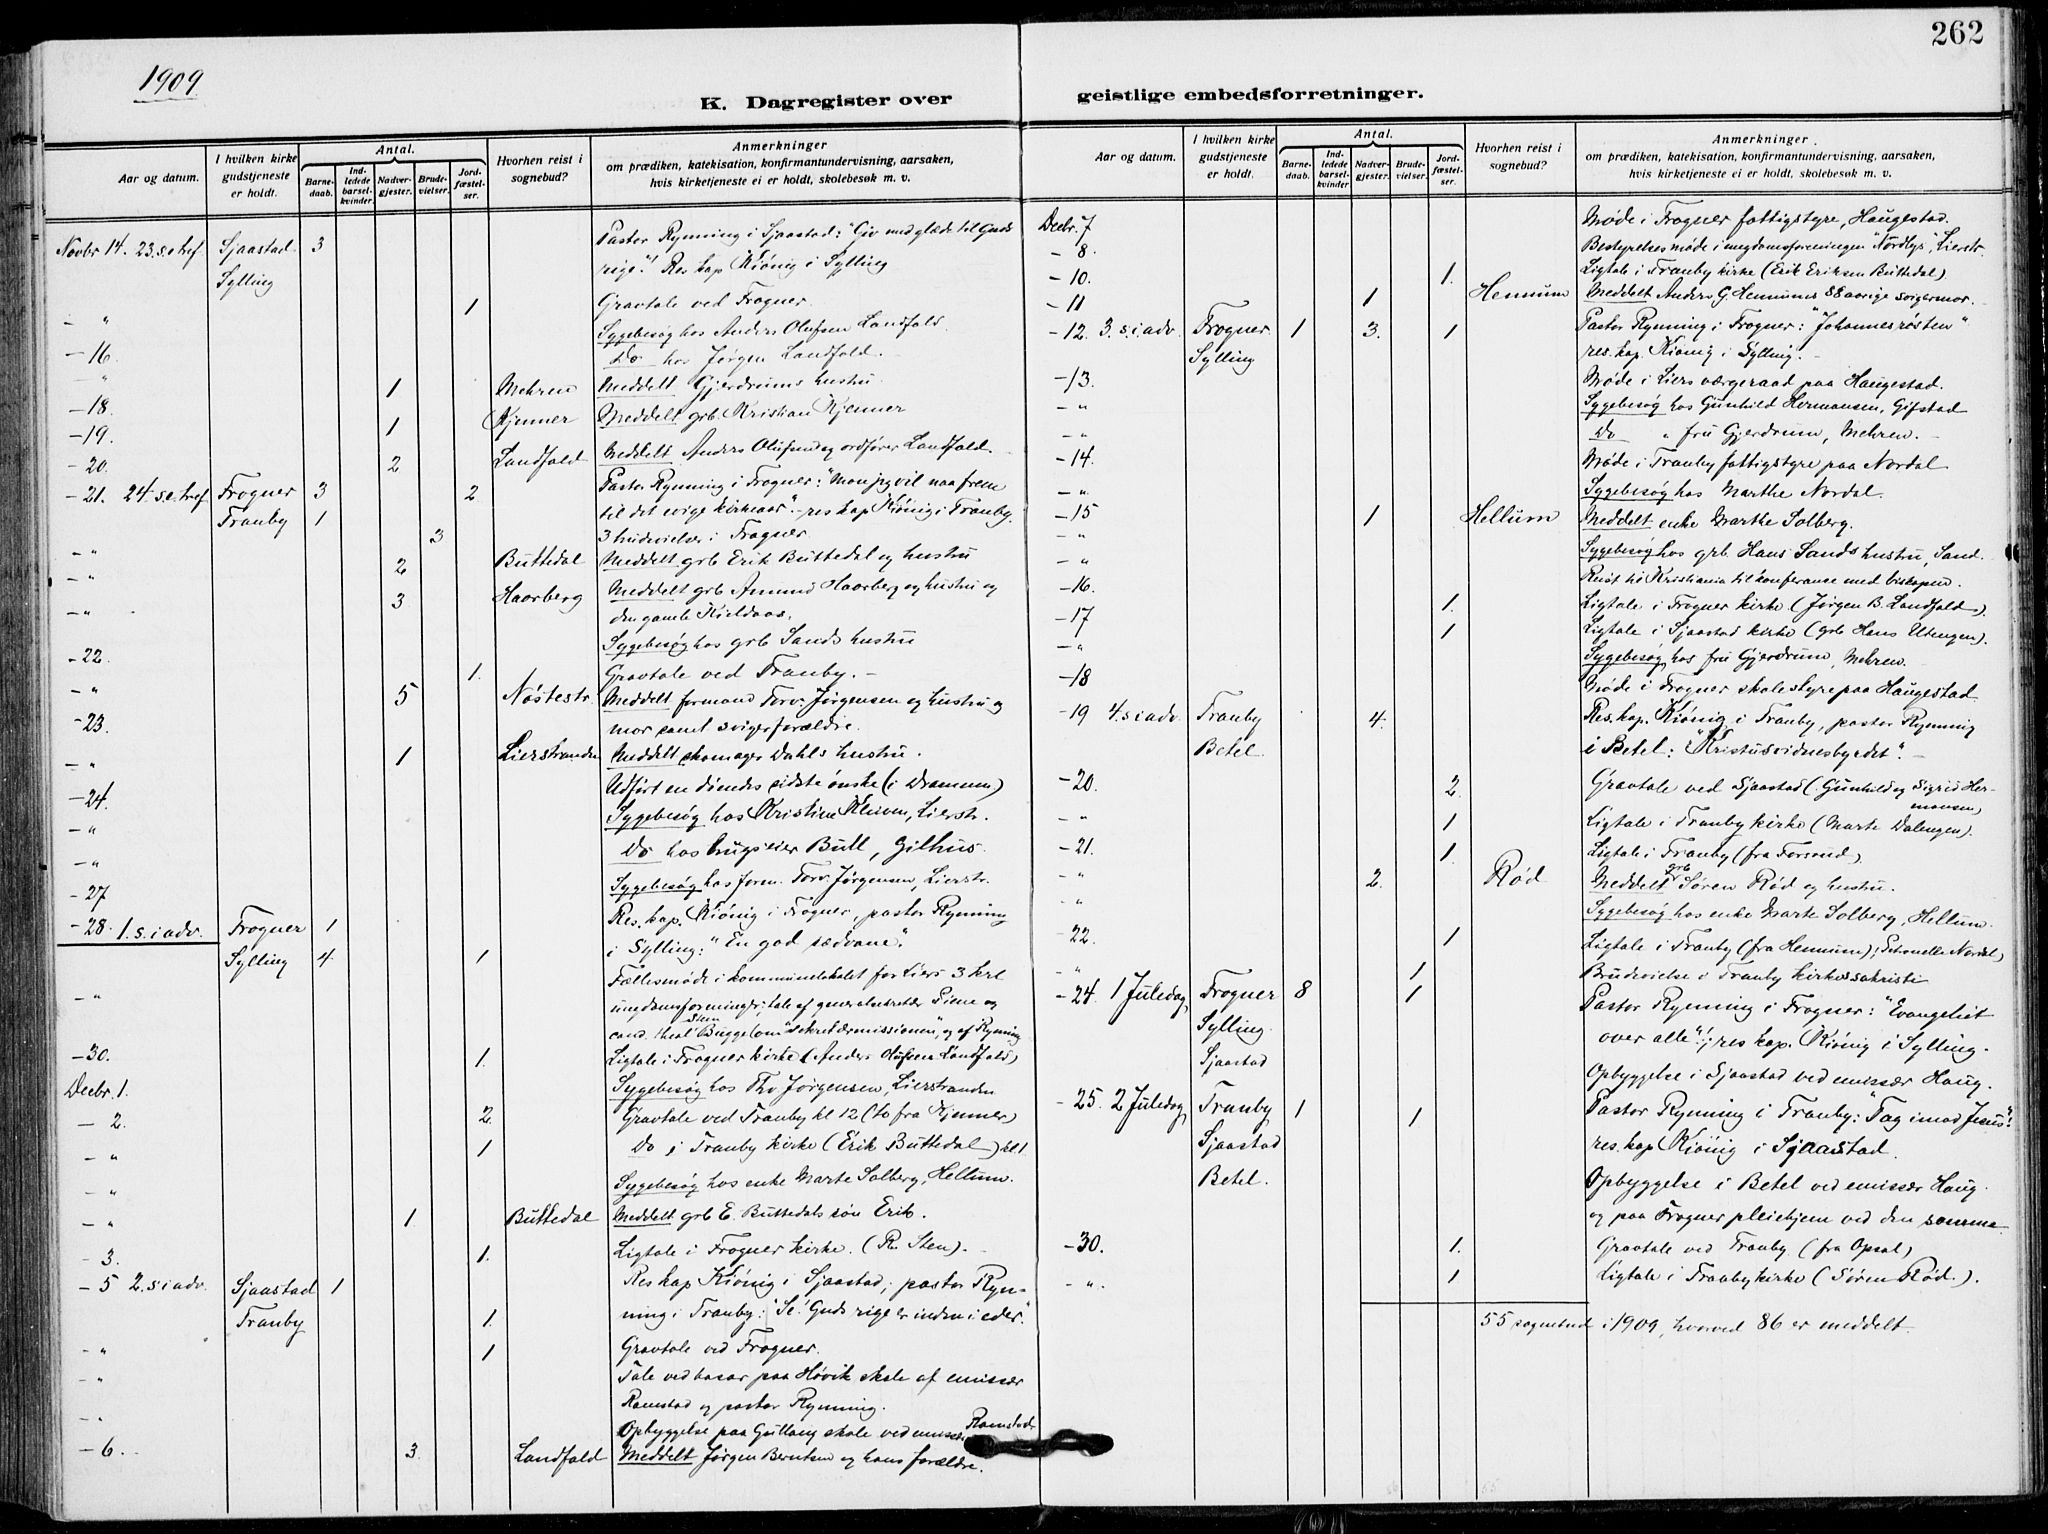 262
1909
K. Dagregister over geistlige embedsforretninger.
Aar og datum.
I hvilken kirke gudstjeneste er holdt.
Antal.
Barnedaab.
Indledede barselkvinder.
Nadvergjester.
Brudevielser.
Jordfæstelser.
Hvorhen reist i sognebud?
Anmerkninger
om prædiken, katekisation, konfirmantundervisning, aarsaken,
hvis kirketjeneste ei er holdt, skolebesøk m. v.
Novbr 14. 23. s. e. tref. Sjaastad 3 Pastor Rynning i Sjaastad: "Giv med glæde til Guds
Sylling rige." Res. kap. Kiönig i Sylling
- " 1 Gravtale ved Frogner.
- 16. Sygebesøg hos Anders Olufsen Landfald.
- " Do hos Jørgen Landfald.
- 18. 1 Mehren Meddelt Gjerdrums hustru.
- 19. 1 Kjenner Meddelt grb. Kristian Kjenner
- 20. 2 Landfald Meddelt Anders Olufsen og ordfører Landfald.
- 21. 24. s. e. tref. Frogner 3 2. Pastor Rynning i Frogner: "Mon jeg vil naa frem
Tranby 1 til det evige kirkeaar". - res. kap. Kiönig i Tranby.
- " 3 3 brudevielser i Frogner
- " 2 Buttedal Meddelt grb Erik Buttedal og hustru
- " 3. Haarberg Meddelt grb Amund Haarberg og hustru og
den gamle Kieldaas.
- 22. Sygebesøg hos grb Sands hustru
- " 1. Gravtale ved Tranby. -
- 23. 5 Nøstestr. Meddelt formand Torv. Jørgensen og hustru og
mor samt svigerforældre.
- " 1 Lierstranden Meddelt skomager Dahls hustru.
- 24. Udført en døendes sidste ønske (i Drammen)
- " Sygebesøg hos Kristine Kleiven, Lierstr.
- " Do hos brugseier Bull, Gilhus.
- 27 Sygebesøg hos form. Torv. Jørgensen, Lierstr.
- 28. 1. s. i adv. Frogner 1 Res. kap. Kiönig i Frogner, pastor Rynning
Sylling 4 1 i Sylling: "En god sædvane".
- " Fællesmøde i kommunelokalet for Liers 3 krl
ungdomsforeninger; tale af generalsekretær Piene og
cand. theol. Sten Bugge (om "sekretærmissionen", og af Rynning
- 30. 1. Ligtale i Frogner kirke (Anders Olufsen Landfald)
Decbr. 1. Sygebesøg hos Thv. Jørgensen, Lierstranden
- 2. 2. Gravtale ved Tranby kl 12 (to fra Kjenner)
- " 1 Do i Tranby kirke (Erik Buttedal) kl 1.
- " Sygebesøg hos enke Marte Solberg, Hellum.
- " 1 Buttedal Meddelt grb E. Buttedals søn Erik.
- 3. 1. Ligtale i Frogner kirke. (R. Sten). -
- 5 2. s. i adv. Sjaastad 1 Res kap Kiönig i Sjaastad; pastor Ryn-
Tranby 1. ning i Tranby: "Se! Guds rige er inden i eder."
- " 1 Gravtale ved Frogner.
- " Tale ved basar paa Høvik skole af emissær
Ramstad og pastor Rynning.
- " Opbyggelse paa Gullaug skole ved emissær Ramstad
- 6. 3. Landfald Meddelt Jørgen Berntsen og hans forældre.
Aar og datum.
I hvilken kirke gudstjeneste er holdt.
Antal.
Barnedaab.
Indledede barselkvinder
Nadvergjester.
Brudevielser.
Jordfæstelser.
Hvorhen reist i sognebud?
Anmerkninger.
om prædiken, katekisation, konfirmantundervisning, aarsaken,
hvis kirketjeneste ei er holdt, skolebesøk m. v.
Decbr. 7 Møde i Frogner fattigstyre, Haugestad.
- 8. Bestyrelsesmøde i ungdomsforeningen "Nordlys", Lierstr.
- 10. 1. Ligtale i Tranby kirke (Erik Eriksen Buttedal)
- 11 1 Hennum Meddelt Anders G. Hennums 88 aarige svigermor. -
- 12. 3. s. i adv. Frogner 1 3. 1 Pastor Rynning i Frogner: "Johannesrøsten"
Sylling res. kap. Kiönig i Sylling. -
- 13. Møde i Liers værgeraad paa Haugestad.
- " Sygebesøg hos Gunhild Hermansen, Gifstad
- " Do " fru Gjerdrum, Mehren. -
- 14. Møde i Tranby fattigstyre paa Nordal
- " Sygebesøg hos Marthe Nordal.
- 15 1 Hellum Meddelt enke Marthe Solberg.
- " Sygebesøg hos grb. Hans Sands hustru, Sand.
- " Reist til Kristiania til konferanse med biskopen.
- 16. 1. Ligtale i Frogner kirke (Jørgen B. Landfald).
- 17 1 Ligtale i Sjaastad kirke (grb Hans Utengen).
- " Sygebesøg hos fru Gjerdrum, Mehren.
- 18 Møde i Frogner skolestyre paa Haugestad
- 19 4. s. i adv. Tranby 4. Res. kap. Kiönig i Tranby, pastor Rynning
Betel. i Betel: "Kristusvidnesbyrdet". -
- 20. 2. Gravtale ved Sjaastad (Gunhild og Sigrid Her-
mansen)
- " 1 Ligtale i Tranby kirke (Marte Dalengen).
- 21. 1. Ligtale i Tranby (fra Forsund)
- " 2. Rød Meddelt grb Søren Rød og hustru.
- " Sygebesøg hos enke Marte Solberg, Hellum.
- 22. 1 Ligtale i Tranby (fra Hennum); Petronelle Nordal)
- " 1 Brudevielse i Tranby kirkes sakristi
- 24. 1 Juledag Frogner 8 1 Pastor Rynning i Frogner: "Evangeliet
Sylling over alle"!; res kap. Kiönig i Sylling.
Sjaastad Opbyggelse i Sjaastad ved emissær Haug.
- 25. 2 Juledag Tranby 1 1 Pastor Rynning i Tranby: "Tag imod Jesus"!
Sjaastad res. kap Kiönig i Sjaastad.
Betel. Opbyggelse i Betel ved emissær Haug
og paa Frogner pleiehjem ved den samme
- 30. 1. Gravtale ved Tranby. (fra Opsal)
- " 1 Ligtale i Tranby kirke (Søren Rød.).
55 sognebud i 1909, hvorved 86 er meddelt.